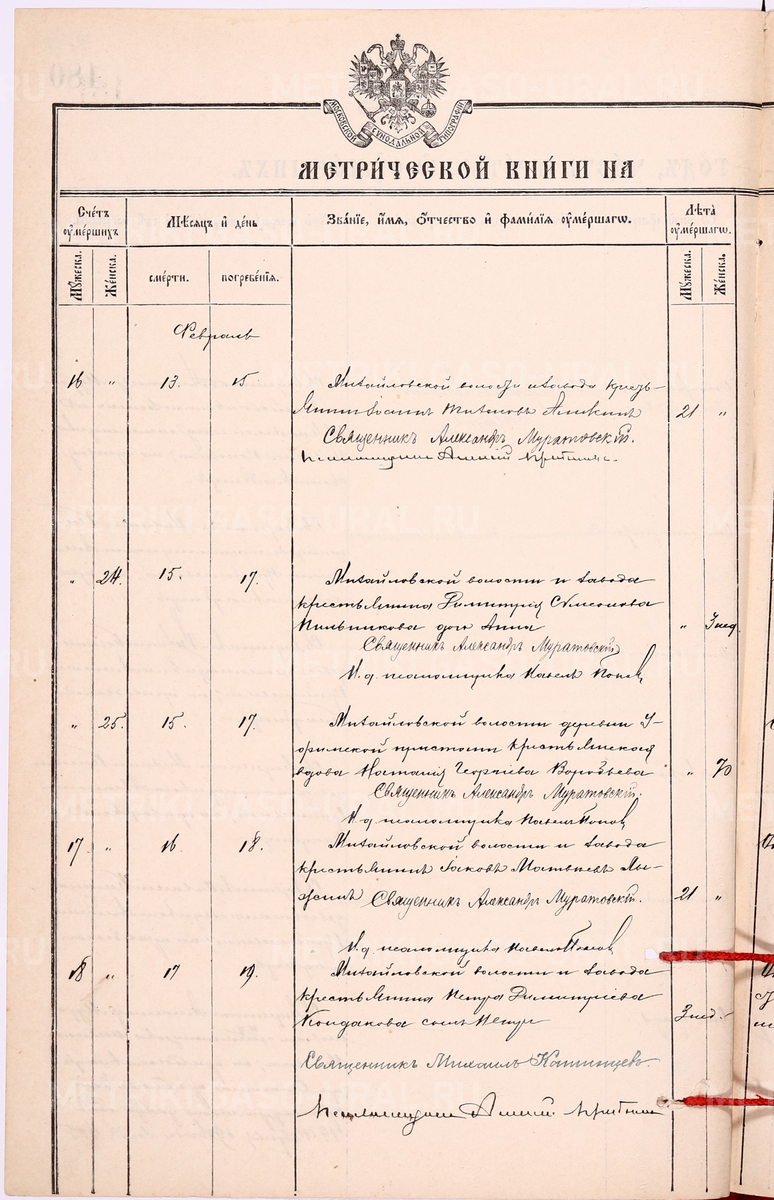 МОСКОВСКОЙ СѴНОДАЛЬНОЙ ТИПОГРАФІИ
МЕТРИ́ЧЕСКОЙ КНИ́ГИ НА
Сче́тъ оуме́ршихъ
Мѣ́сяцъ и де́нь
Зва́ніе, и́мя, о́тчество и фами́лія оуме́ршагѡ.
Лѣ́та оуме́ршагѡ.
Му́жеска.
Же́нска.
сме́рти.
погребе́нія.
Му́жеска.
Же́нска.
Февраль
16 „ 13. 15. Михайловской волости и завода кресть-
янинъ Іоаннъ 21 „
Священникъ Александръ Муратовскій.
Псаломщикъ Алексій
„ 24. 15. 17. Михайловской волости и завода
крестьянина Димитрія Симеонова
дочь Анна „ 3 нед.
Священникъ Александръ Муратовскій
И. д. псаломщика Павелъ Поповъ
„ 25. 15. 17. Михайловской волости деревни У-
фимской пристани крестьянская
вдова Наталія Георгіева Воробьева „ 70
Священникъ Александръ Муратовскій.
И. д. псаломщика Павелъ Поповъ
17 „ 16 18. Михайловской волости и завода
крестьянинъ Іаковъ Матѳеевъ
Священникъ Александръ Муратовскій. 21 „
И. д. псаломщика Павелъ Поповъ
18 „ 17 19. Михайловской волости и завода
крестьянина Петра Димитріева
Кондакова сынъ Петръ 3 нед. „
Священникъ Михаилъ
Псаломщикъ Алексій